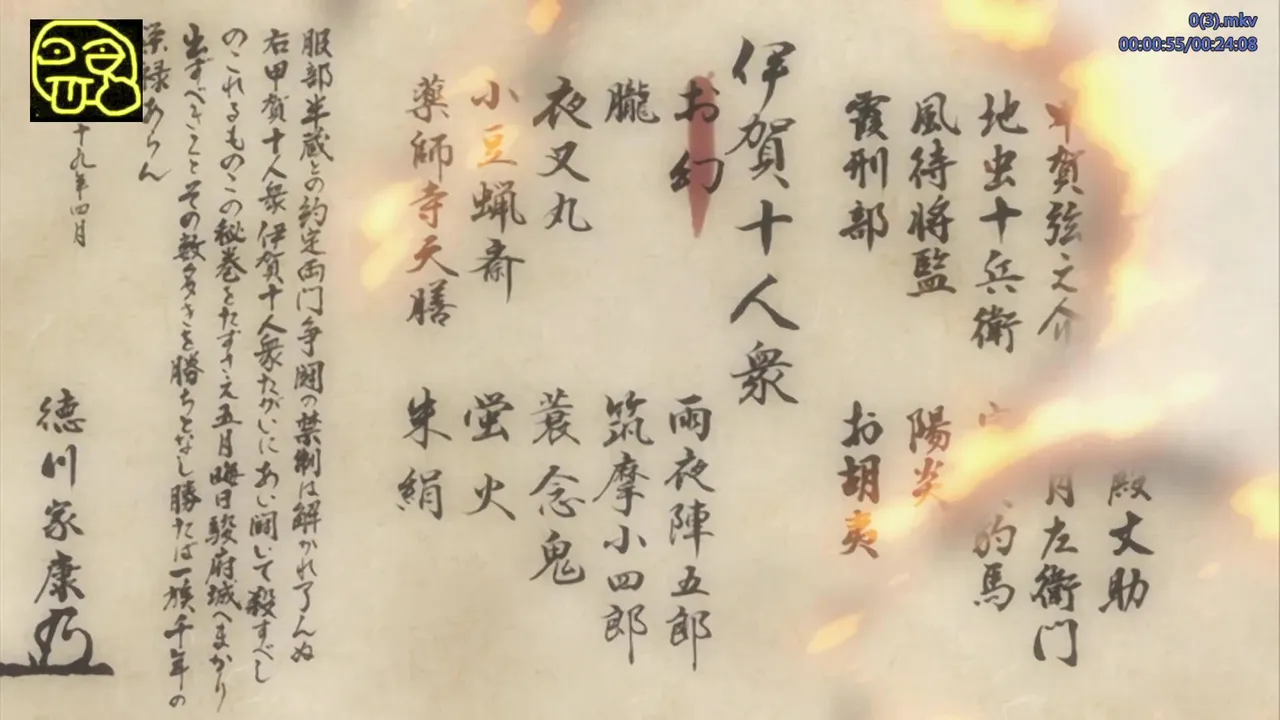 0(3).mkv
00:00:55/00:24:08
殿丈助
甲賀弦之介
月左衛門
地虫十兵衛
豹馬
風待将監
陽炎
霞刑部
お胡夷
伊賀十人衆
お幻
雨夜陣五郎
朧
筑摩小四郎
夜叉丸
蓑念鬼
小豆蝋斎
蛍火
薬師寺天膳
朱絹
服部半蔵との約定両門争闘の禁制は解かれ了んぬ
右甲賀十人衆伊賀十人衆たがいにあい闘いて殺すべし
のこれるものこの秘巻をたずさえ五月晦日駿府城へまかり
出ずべきことその数多きを勝ちとなし勝たば一族千年の
栄禄あらん
十九年四月
徳川家康